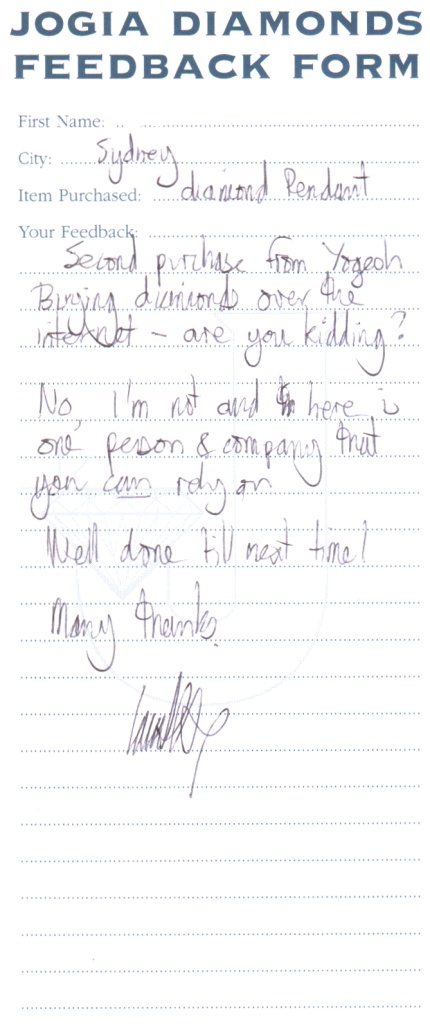 JOGIA DIAMONDS
FEEDBACK FORM
First Name:
City: Sydney
Item Purchased: diamond Pendant
Your Feedback:
Second purchase from Yogesh
Buying diamonds over the
internet - are you kidding?
No, I'm not and here is
one person & company that
you can rely on
Well done till next time!
Many thanks